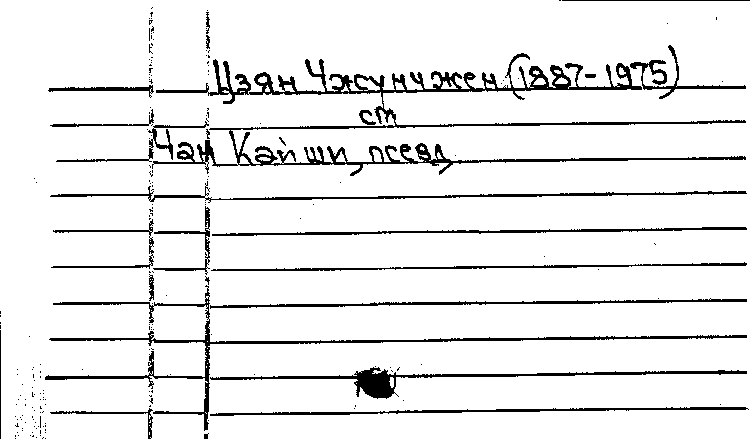 Цзян Чжунчжен (1887-1975)
см
Чан Кайши, псевд,